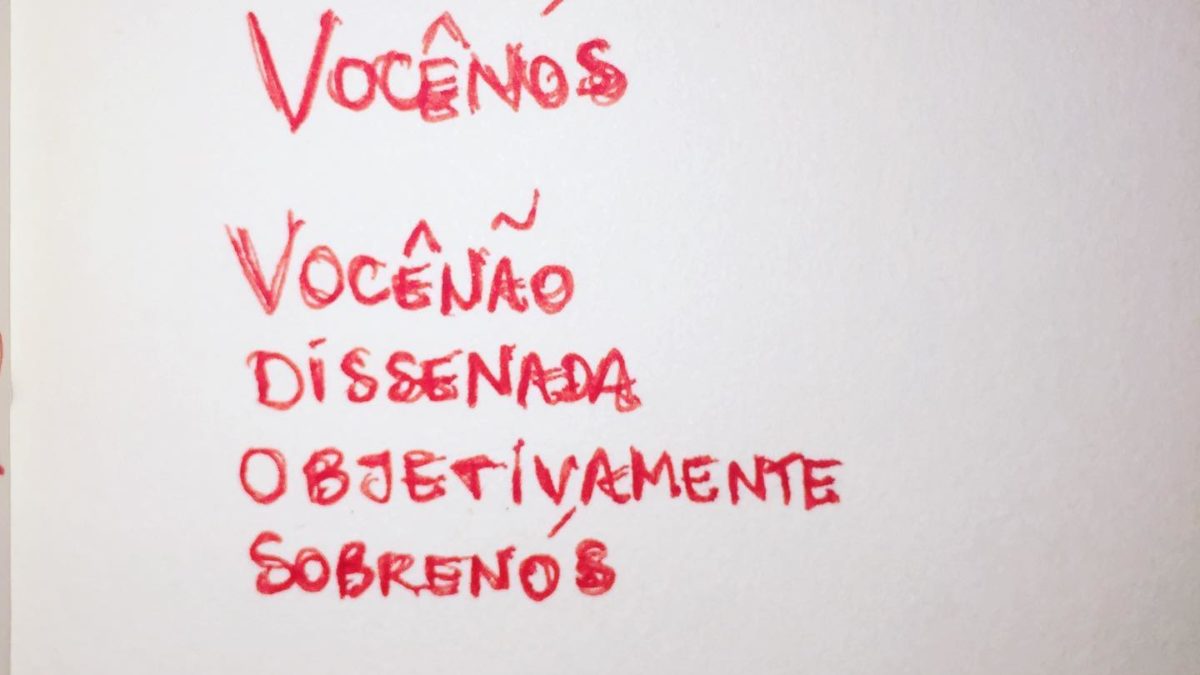 VOCÊNÓS
VOCÊNÃO
DISSENADA
OBJETIVAMENTE
SOBRENÓS